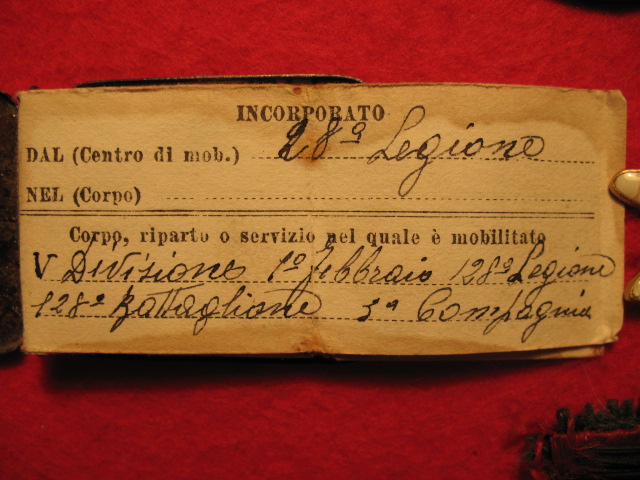 INCORPORATO
DAL (Centro di mob.) 28ª Legione
NEL (Corpo)
Corpo, riparto o servizio nel quale è mobilitato
V Divisione 1º Febbraio 128ª Legione
128º Battaglione 3ª Compagnia